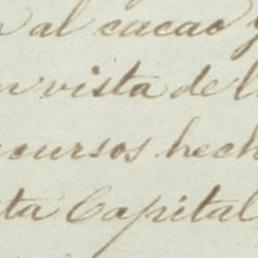 al cacao y
vista de l
cursos hech
ta Capital